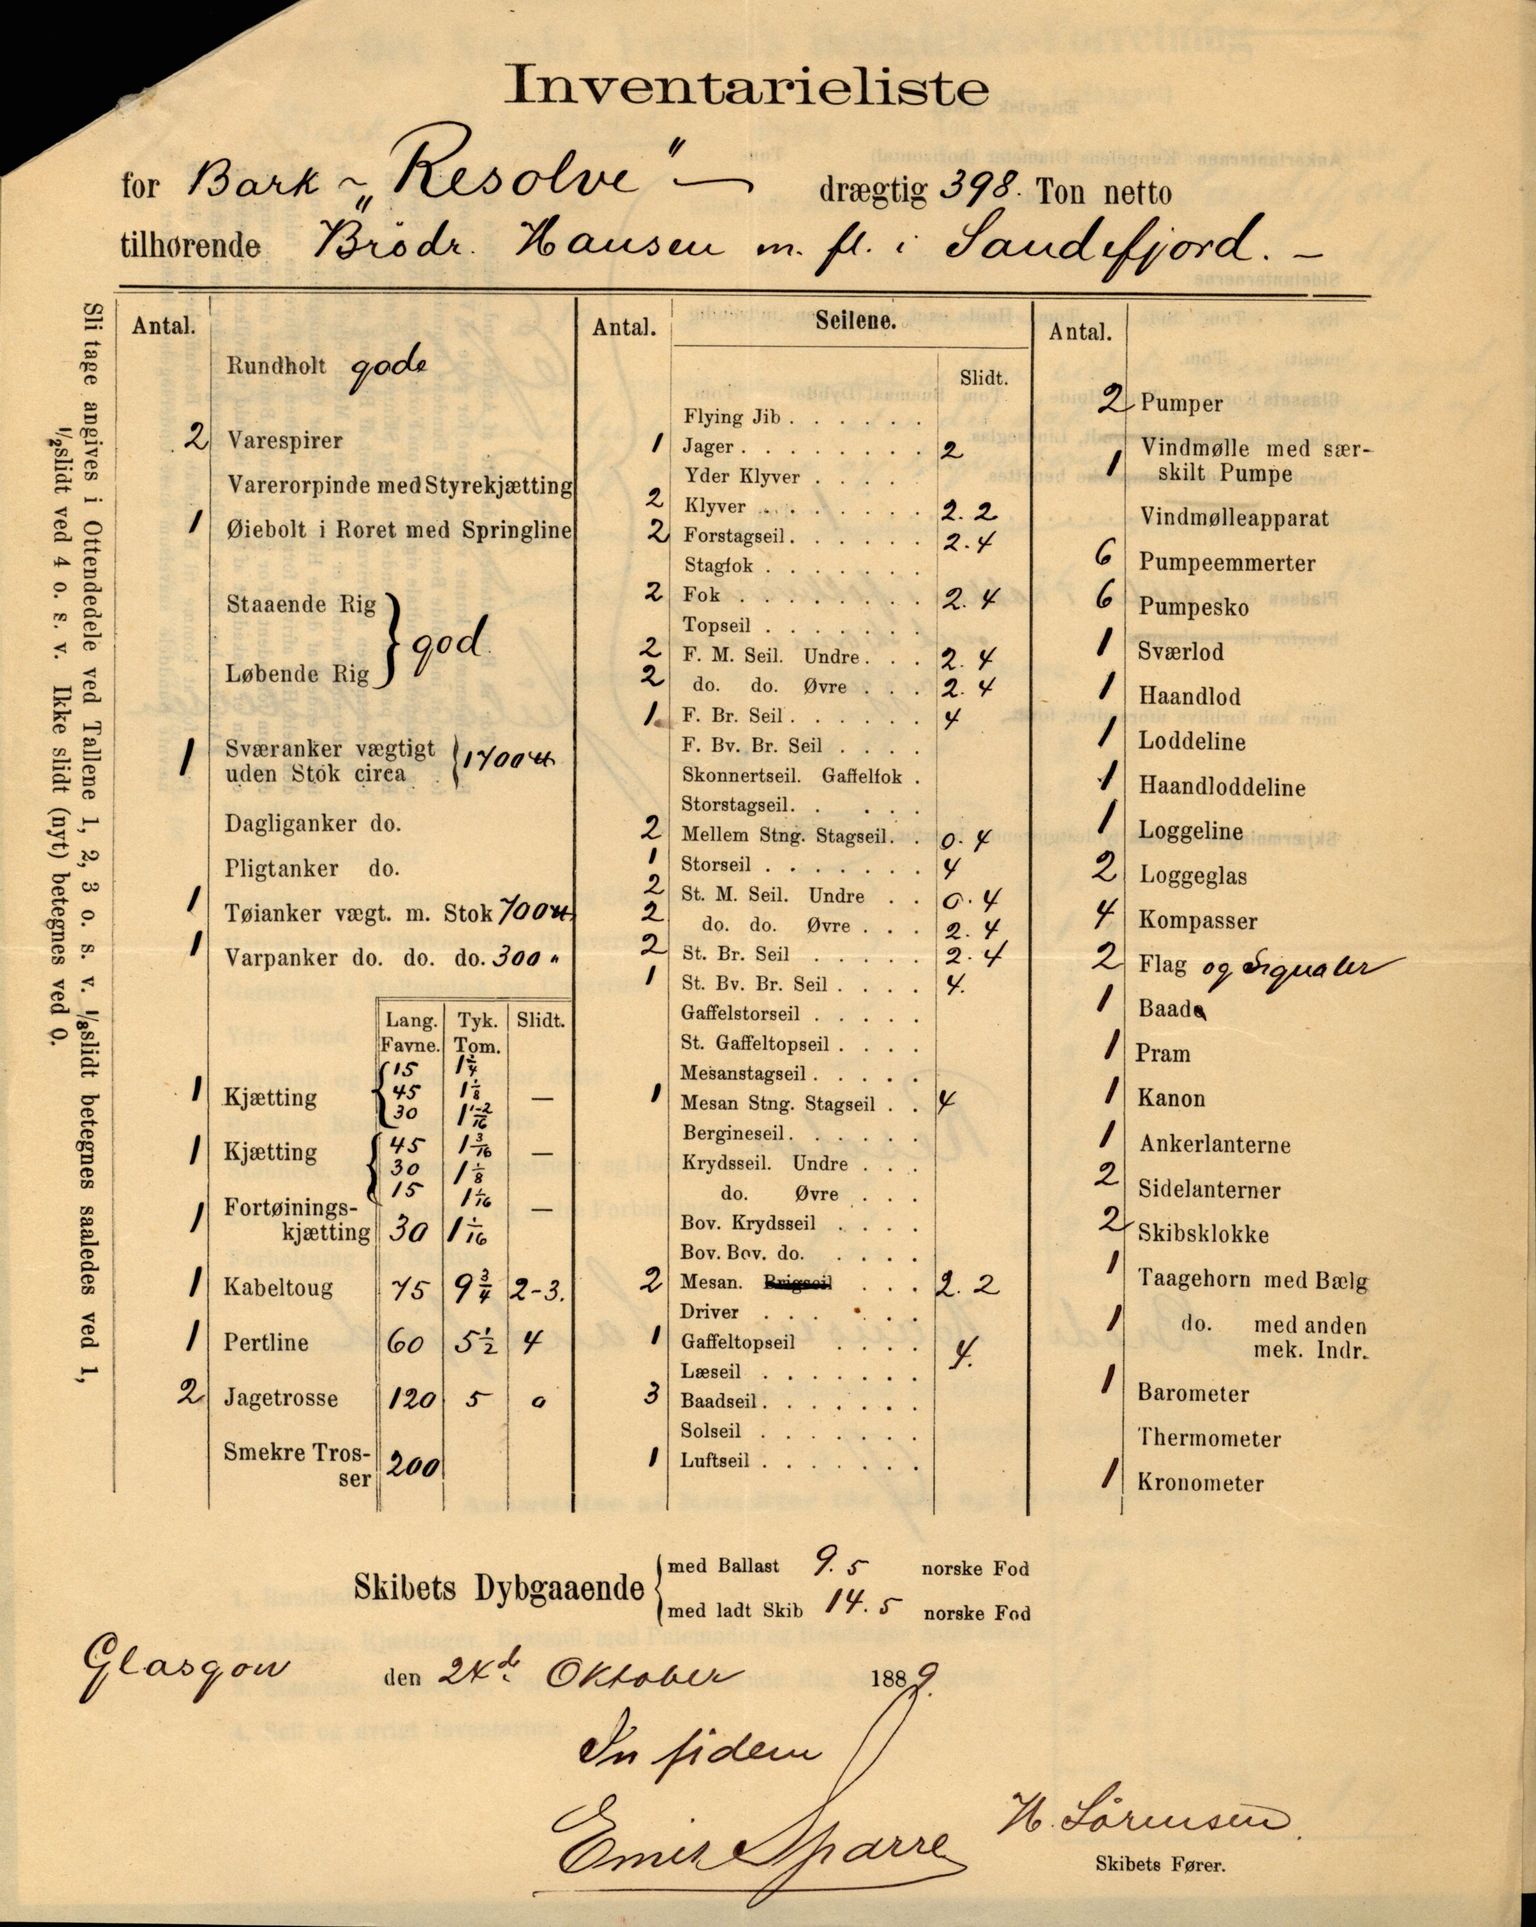 Inventarieliste
for Bark ~ „Resolve" — drægtig 398. Ton netto
tilhørende Brödr. Hansen m. fl. i Sandefjord. —
Slitage angives i Ottendedele ved Tallene 1, 2, 3 o. s. v. ⅛slidt betegnes saaledes ved 1,
½slidt ved 4 o. s. v. Ikke slidt (nyt) betegnes ved 0.
Antal.
Rundholt gode
2 Varespirer
Varerorpinde med Styrekjætting
1 Øiebolt i Roret med Springline
Staaende Rig
god.
Løbende Rig
1 Sværanker vægtigt
uden Stok circa 1700 ℔
Dagliganker do.
Pligtanker do.
1 Tøianker vægt. m. Stok 700 ℔
1 Varpanker do. do. do. 300 "
Lang. Tyk. Slidt.
Favne. Tom.
15 1 2/4
1 Kjætting 45 1 1/8 —
30 1 1-2/16
45 1 3/16
1 Kjætting 30 1 1/8 —
15 1 1/16
1 Fortøinings- —
kjætting 30 1 1/16
1 Kabeltoug 75 9 3/4 2-3.
1 Pertline 60 5 1/2 4
2 Jagetrosse 120 5 0
Smekre Tros-
ser 200
Antal. Seilene.
Slidt.
Flying Jib
1 Jager 2
Yder Klyver
2 Klyver 2. 2
2 Forstagseil 2. 4
Stagfok
2 Fok 2. 4
Topseil
2 F. M. Seil. Undre 2. 4
2 do. do. Øvre 2. 4
1 F. Br. Seil 4
F. Bv. Br. Seil
Skonnertseil. Gaffelfok
Storstagseil
2 Mellem Stng. Stagseil 0. 4
1 Storseil 4
2 St. M. Seil. Undre 0. 4
2 do. do. Øvre 2. 4
2 St. Br. Seil 2. 4
1 St. Bv. Br. Seil 4.
Gaffelstorseil
St. Gaffeltopseil
Mesanstagseil
1 Mesan Stng. Stagseil 4
Bergineseil
Krydsseil. Undre
do. Øvre
Bov. Krydsseil
Bov. Bov. do.
2 Mesan. Brigseil 2. 2
Driver
1 Gaffeltopseil 4.
Læseil
3 Baadseil
Solseil
1 Luftseil
Antal.
2 Pumper
Vindmølle med sær-
1 skilt Pumpe
Vindmølleapparat
6 Pumpeemmerter
6 Pumpesko
1 Sværlod
1 Haandlod
1 Loddeline
1 Haandloddeline
1 Loggeline
2 Loggeglas
4 Kompasser
2 Flag og Signaler
1 Baade
1 Pram
1 Kanon
1 Ankerlanterne
2 Sidelanterner
2 Skibsklokke
1 Taagehorn med Bælg
1 do. med anden
mek. Indr.
1 Barometer
Thermometer
1 Kronometer
Skibets Dybgaaende
med Ballast 9. 5 norske Fod
med ladt Skib 14. 5 norske Fod
Glasgow den 24de Oktober 1889.
In fidem
Emil Sparre
H. Sörensen.
Skibets Fører.